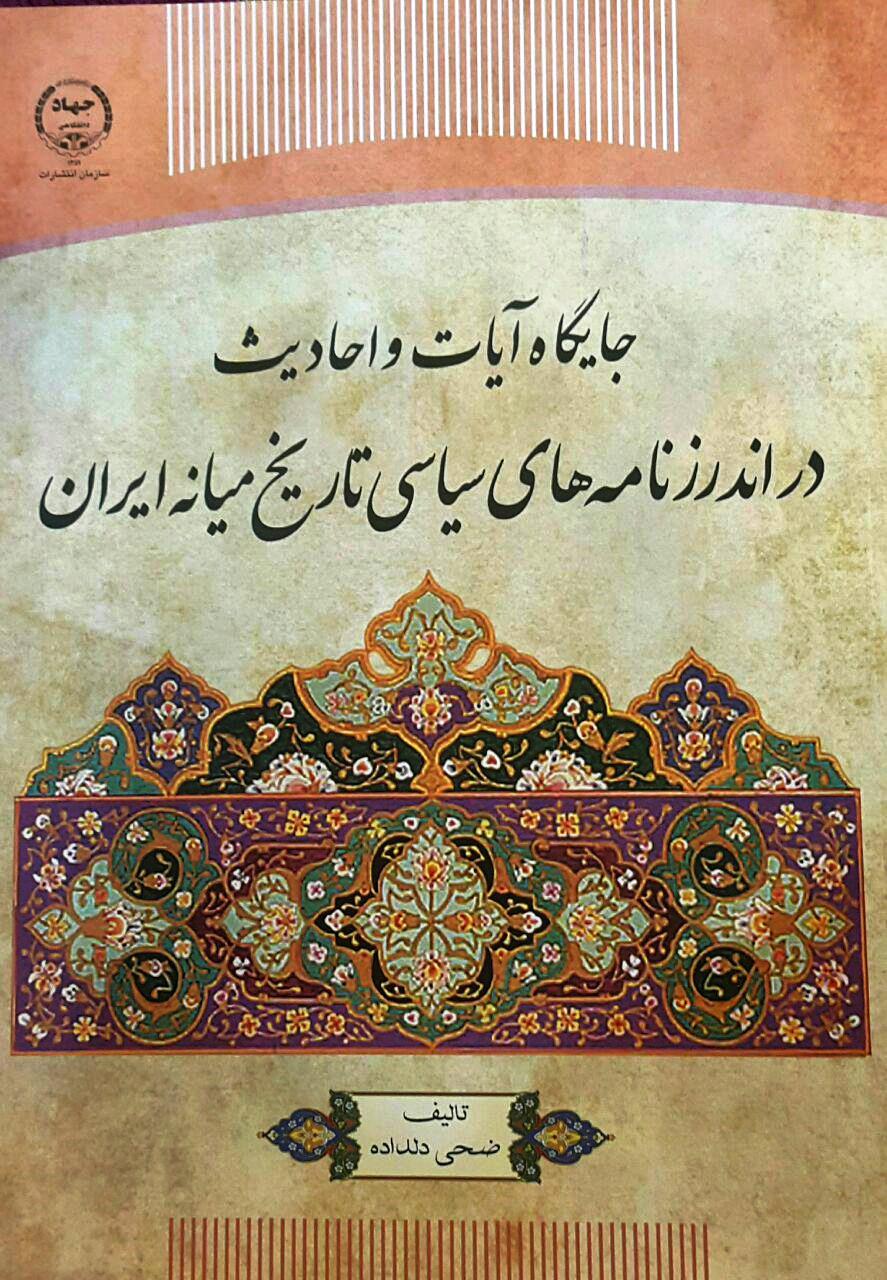 جهاد
دانشگاهی
سازمان انتشارات
جایگاه آیات و احادیث
در اندرزنامه های سیاسی تاریخ میانه ایران
تالیف
ضحی دلداده